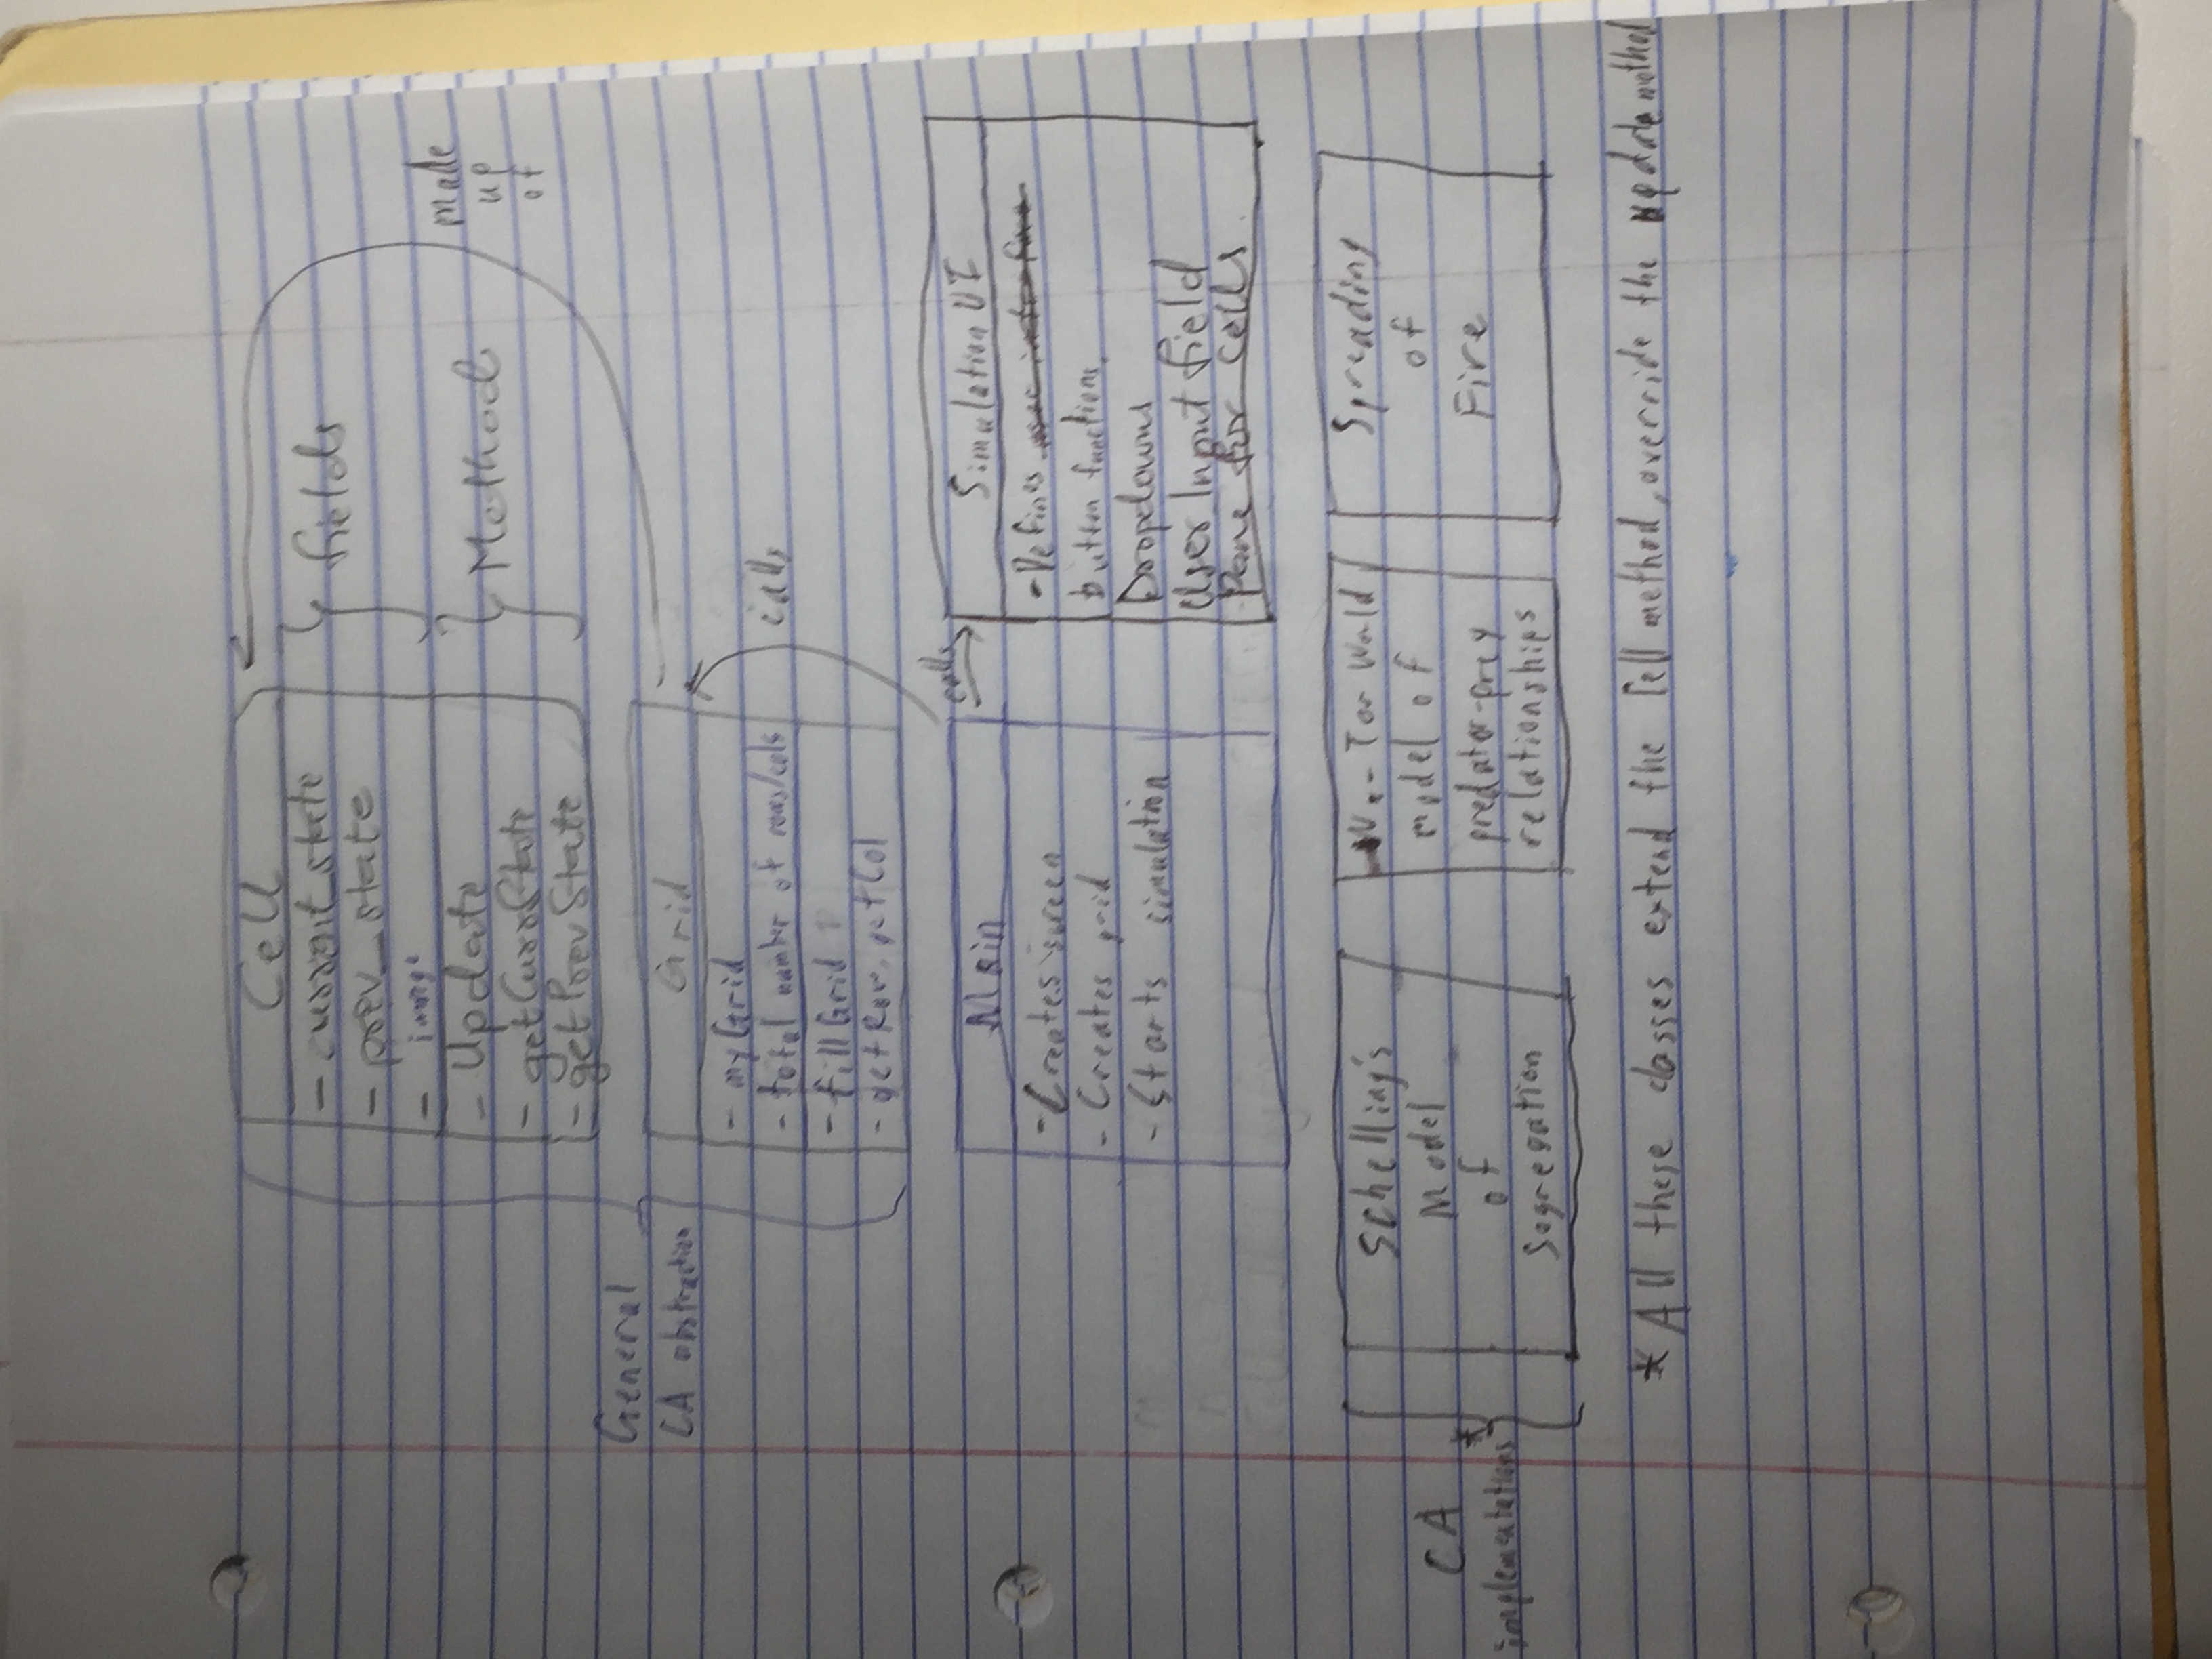 Cell
- current_state
- prev_state
- image
fields
- Update
- getCurrState
- getPrevState
Method
made
up
of
General
CA abstraction
Grid
- myGrid
- total number of rows/cols
- fillGrid
- getRow, getCol
calls
Main
- Creates screen
- Creates grid
- Starts simulation
calls
Simulation UI
- Defines
button functions,
Dropdowns
User Input field
Pane for cells.
CA
implementations *
Schelling's
Model
of
Segregation
Tor World
model of
predator-prey
relationships
Spreading
of
Fire
* All these classes extend the Cell method, override the update method